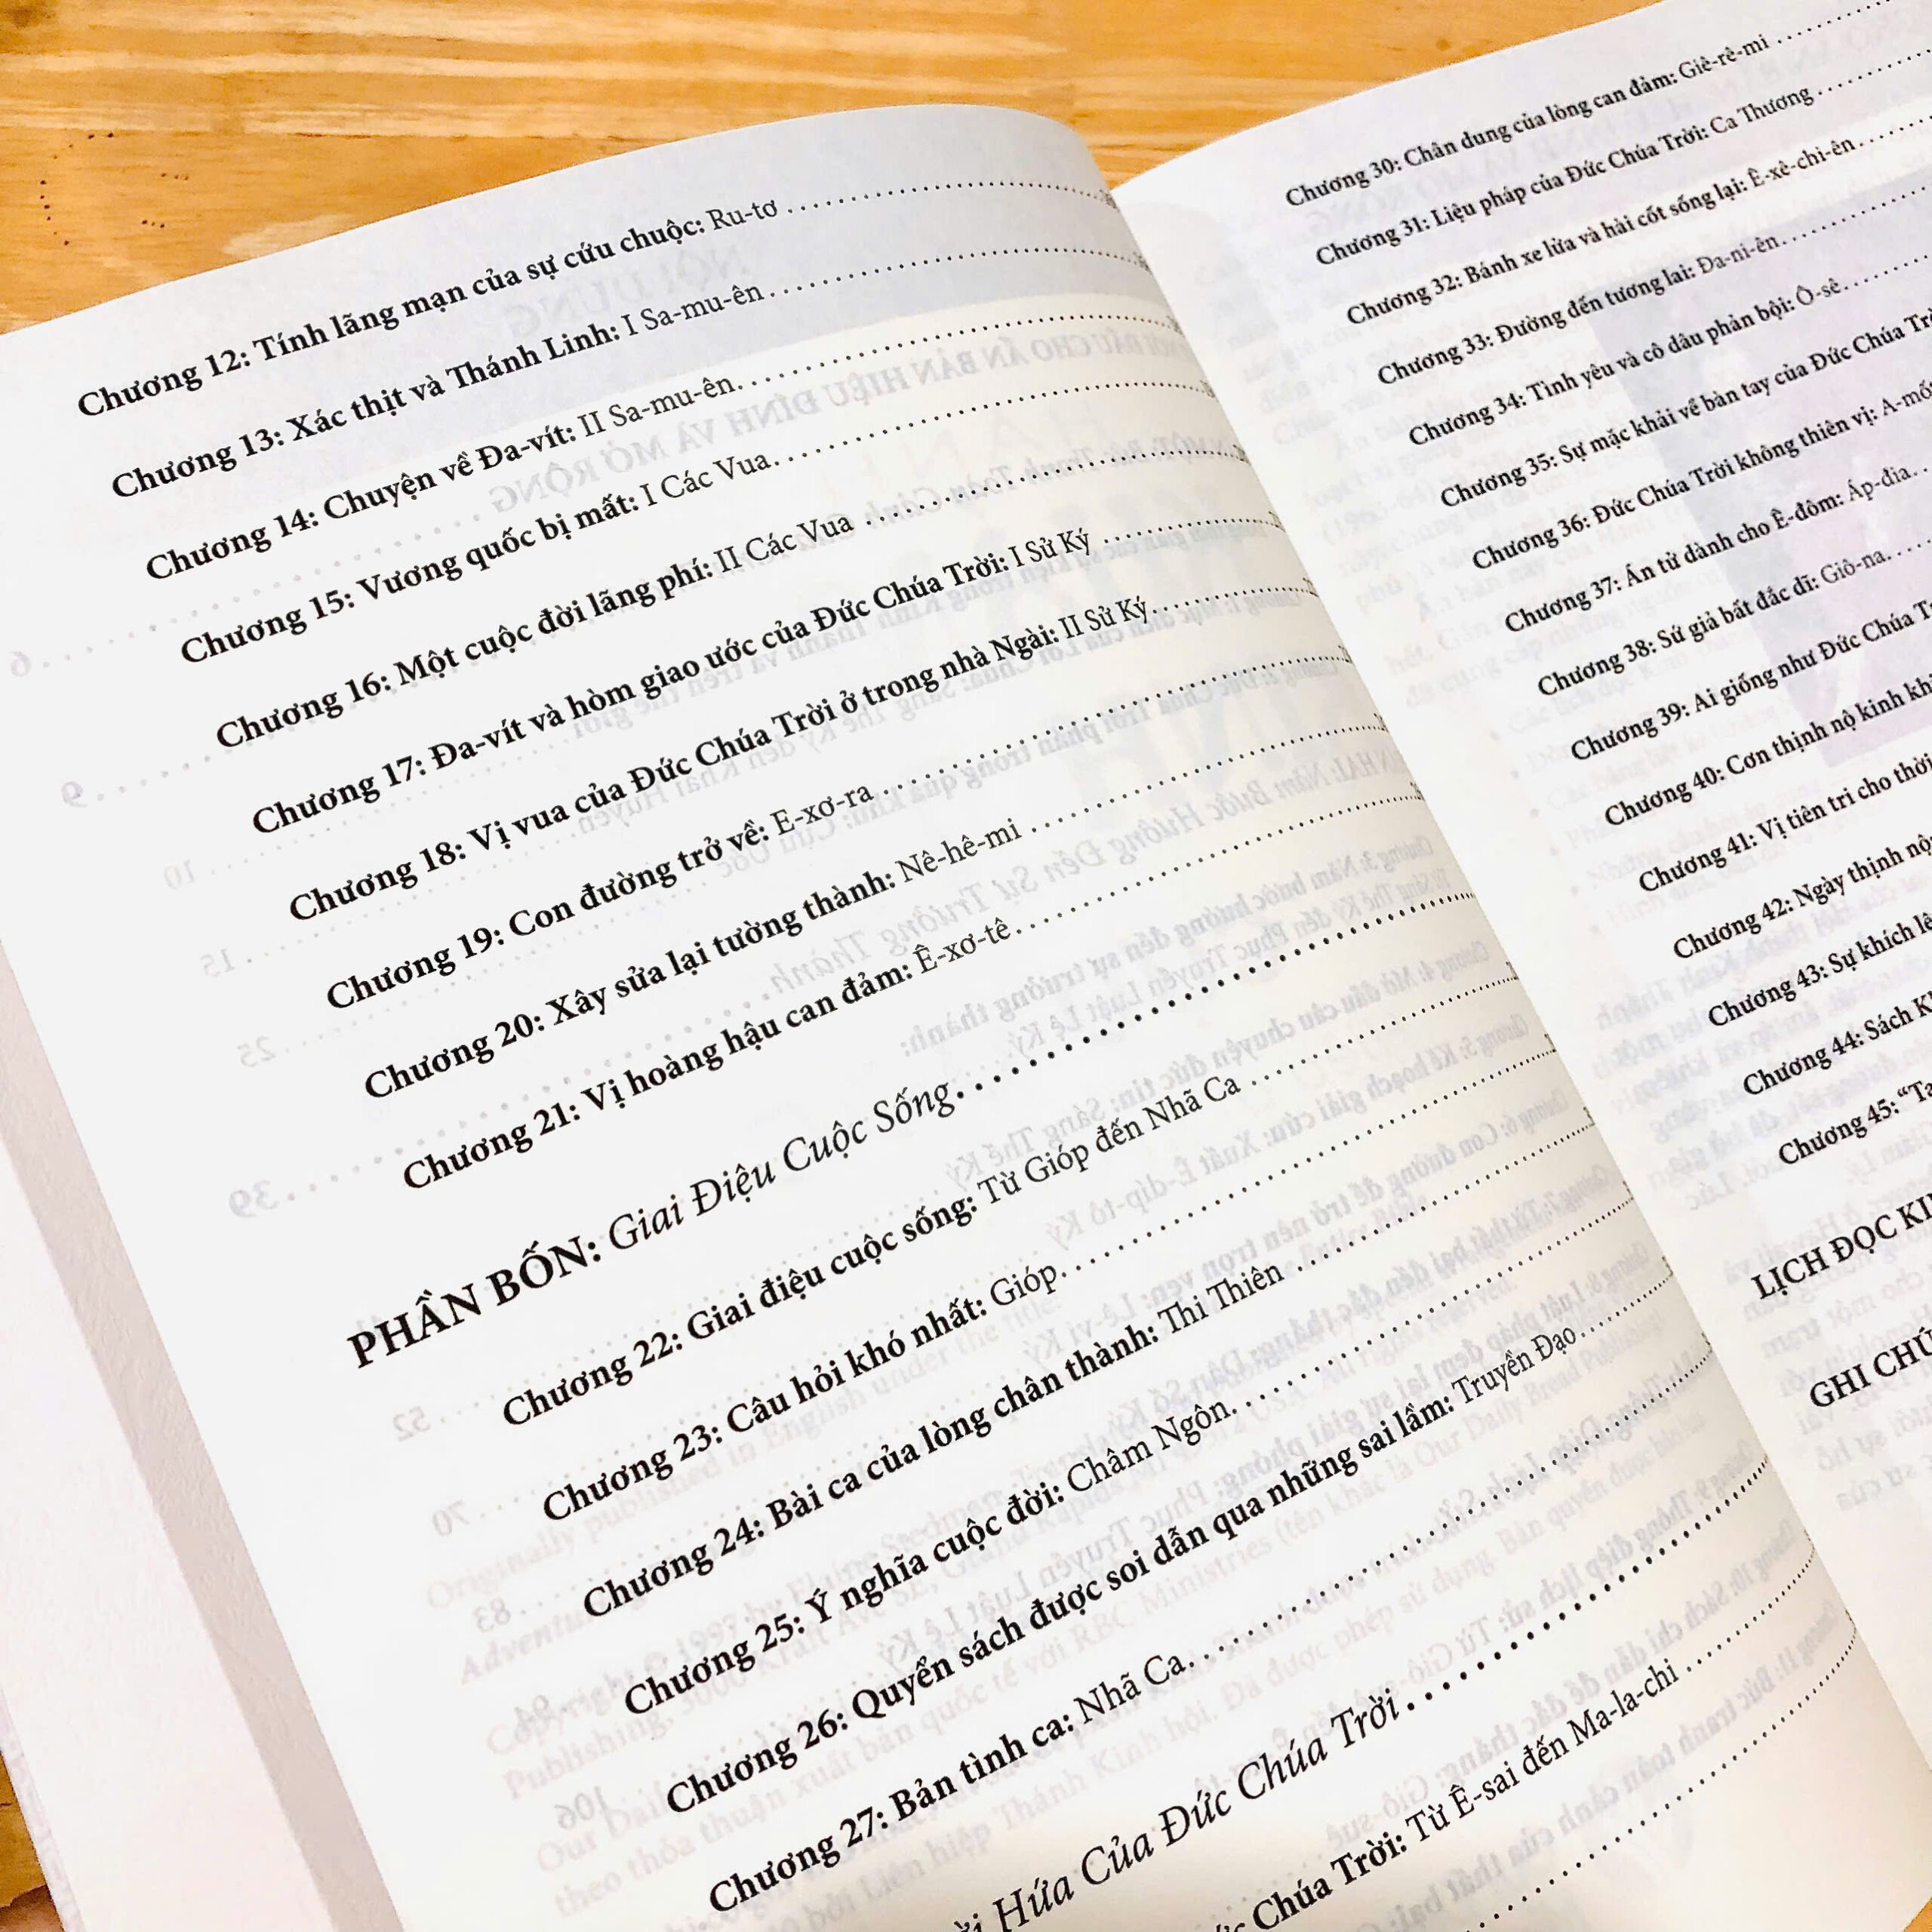 Chương 12: Tính lãng mạn của sự cứu chuộc: Ru-tơ
Chương 13: Xác thịt và Thánh Linh: I Sa-mu-ên
Chương 14: Chuyện về Đa-vít: II Sa-mu-ên
Chương 15: Vương quốc bị mất: I Các Vua
Chương 16: Một cuộc đời lãng phí: II Các Vua
Chương 17: Đa-vít và hòm giao ước của Đức Chúa Trời: I Sử Ký
Chương 18: Vị vua của Đức Chúa Trời ở trong nhà Ngài: II Sử Ký
Chương 19: Con đường trở về: E-xơ-ra
Chương 20: Xây sửa lại tường thành: Nê-hê-mi
Chương 21: Vị hoàng hậu can đảm: Ê-xơ-tê
PHẦN BỐN: Giai Điệu Cuộc Sống
Chương 22: Giai điệu cuộc sống: Từ Gióp đến Nhã Ca
Chương 23: Câu hỏi khó nhất: Gióp
Chương 24: Bài ca của lòng chân thành: Thi Thiên
Chương 25: Ý nghĩa cuộc đời: Châm Ngôn
Chương 26: Quyển sách được soi dẫn qua những sai lầm: Truyền Đạo
Chương 27: Bản tình ca: Nhã Ca
Hứa Của Đức Chúa Trời
Chúa Trời: Từ Ê-sai đến Ma-la-chi
Chương 30: Chân dung của lòng can đảm: Giê-rê-mi
Chương 31: Liệu pháp của Đức Chúa Trời: Ca Thương
Chương 32: Bánh xe lửa và hài cốt sống lại: Ê-xê-chi-ên
Chương 33: Đường đến tương lai: Đa-ni-ên
Chương 34: Tình yêu và cô dâu phản bội: Ô-sê
Chương 35: Sự mặc khải về bàn tay của Đức Chúa
Chương 36: Đức Chúa Trời không thiên vị:
Chương 37: Án tử dành cho Ê-đôm: Áp-đia
Chương 38: Sứ giả bất đắc dĩ: Giô-na
Chương 39: Ai giống như Đức Chúa
Chương 40: Cơn thịnh nộ kinh
Chương 41: Vị tiên tri cho thời
Chương 42: Ngày thịnh
Chương 43: Sự khích
Chương 44: Sách
Chương 45:
LỊCH ĐỌC
GHI